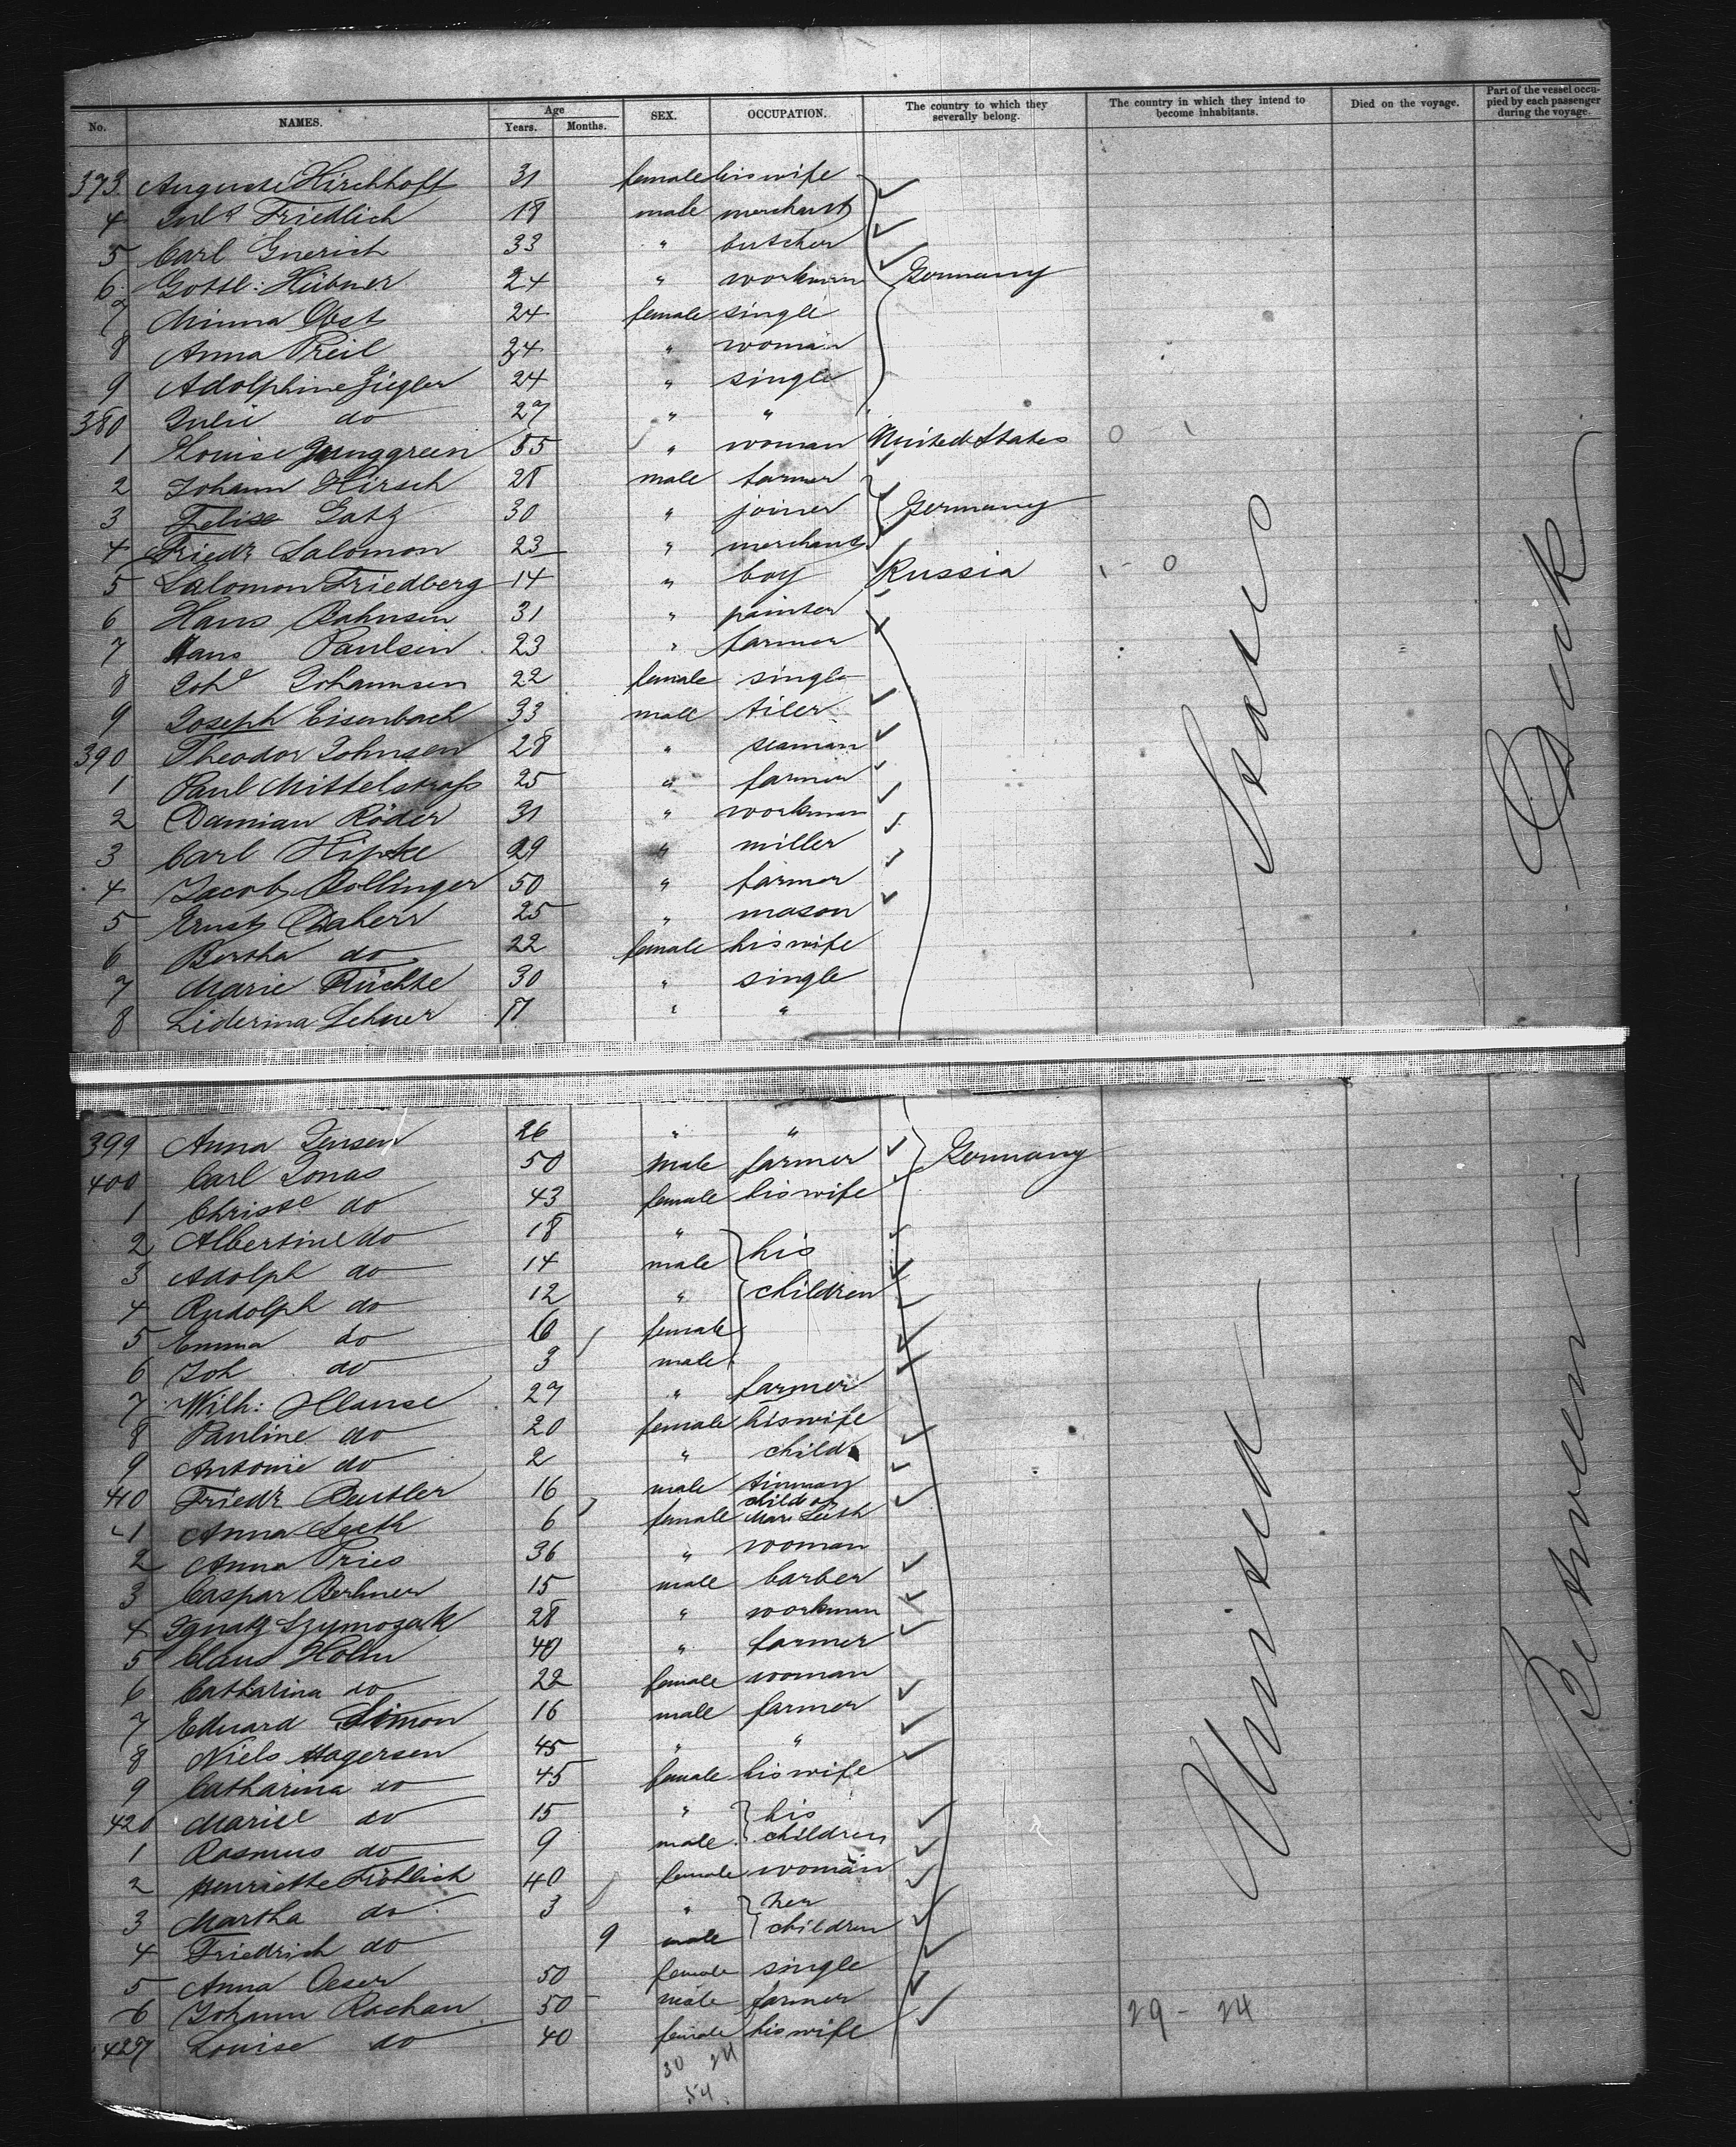 No. NAMES. Age Years. Months. SEX. OCCUPATION. The country to which they severally belong. The country in which they intend to become inhabitants. Died on the voyage. Part of the vessel occupied by each passenger during the voyage.
373 Auguste Hirchhoff 31 female his wife
4 Friedlich 18 male merchant
5 Carl Gnerich 33 " butcher
6 Gottl: Hübner 24 " workman Germany
7 Minna Obst 24 female single
8 Anna Preil 24 " woman
9 Adolphine Ziegler 24 " single
380 Julie do 27 " "
1 Louise Junggreen 55 " woman United States
2 Johann Hirsch 28 male farmer
3 Felise Gatz 30 " joiner Germany
4 Friedr Salomon 23 " merchant
5 Salomon Friedberg 14 " boy Russia
6 Hans Bahnsen 31 " painter
7 Hans Paulsen 23 " farmer
8 Joh Johannsen 22 female single
9 Joseph Eisenbach 33 male tiler
390 Theodor Johnsen 28 " seaman
1 Paul Mittelstrass 25 " farmer
2 Damian Röder 31 " workman
3 Carl Hipke 29 " miller
4 Jacob Bollinger 50 " farmer
5 Ernst Daherr 25 " mason
6 Bertha do 22 female his wife
7 Marie Rüchke 30 " single
8 Liderina Lehner 17 " "
399 Anna Jensen 26 " "
400 Carl Jonas 50 male farmer Germany
1 Christe do 43 female his wife
2 Albertine do 18 " his
3 Adolph do 14 male
4 Rudolph do 12 " children
5 Emma do 6 female
6 Joh do 3 male
7 Wilh: Hanse 27 " farmer
8 Pauline do 20 female his wife
9 Antonie do 2 " child
410 Friedr Beutler 16 male tinman
1 Anna Leeth 6 female child of Mar: Leeth
2 Anna Pries 36 " woman
3 Caspar Berliner 15 male barber
4 Ignatz Szymozak 28 " workman
5 Claus Holln 40 " farmer
6 Catharina do 22 female woman
7 Eduard Simon 16 male farmer
8 Niels Hagersen 45 " "
9 Catharina do 45 female his wife
420 Marie do 15 " his
1 Rasmus do 9 male children
2 Henriette Frölich 40 female woman
3 Martha do 3 " her
4 Friedrich do 9 male children
5 Anna Oeser 50 female single
6 Johann Rachau 50 male farmer
427 Louise do 40 female his wife
29 - 24
30 24
54
United States
Between Deck